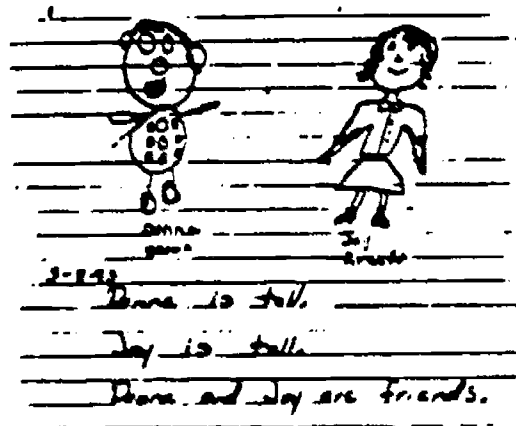 Donna Joy
Donna is tall.
Joy is tall.
Donna and Joy are friends.